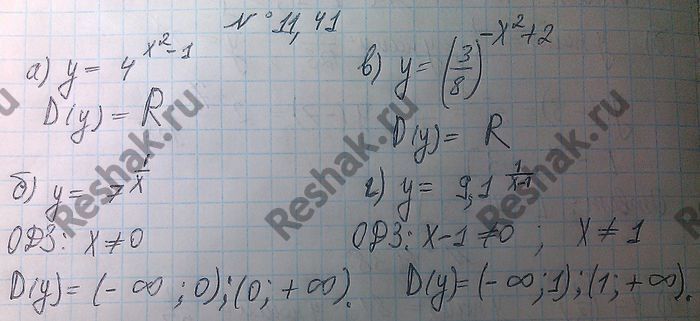 N° 11,41
а) y = 4^{x²-1}
D(y) = R
б) y = 7^{1/x}
ОДЗ: x ≠ 0
D(y) = (-∞ ; 0);(0; +∞).
в) y = (3/8)^{-x²+2}
D(y) = R
г) y = 9,1^{1/(x-1)}
ОДЗ: x-1 ≠ 0 ; x ≠ 1
D(y) = (-∞; 1); (1; +∞).
Reshak.ru
Reshak.ru
Reshak.ru
Reshak.ru
Reshak.ru